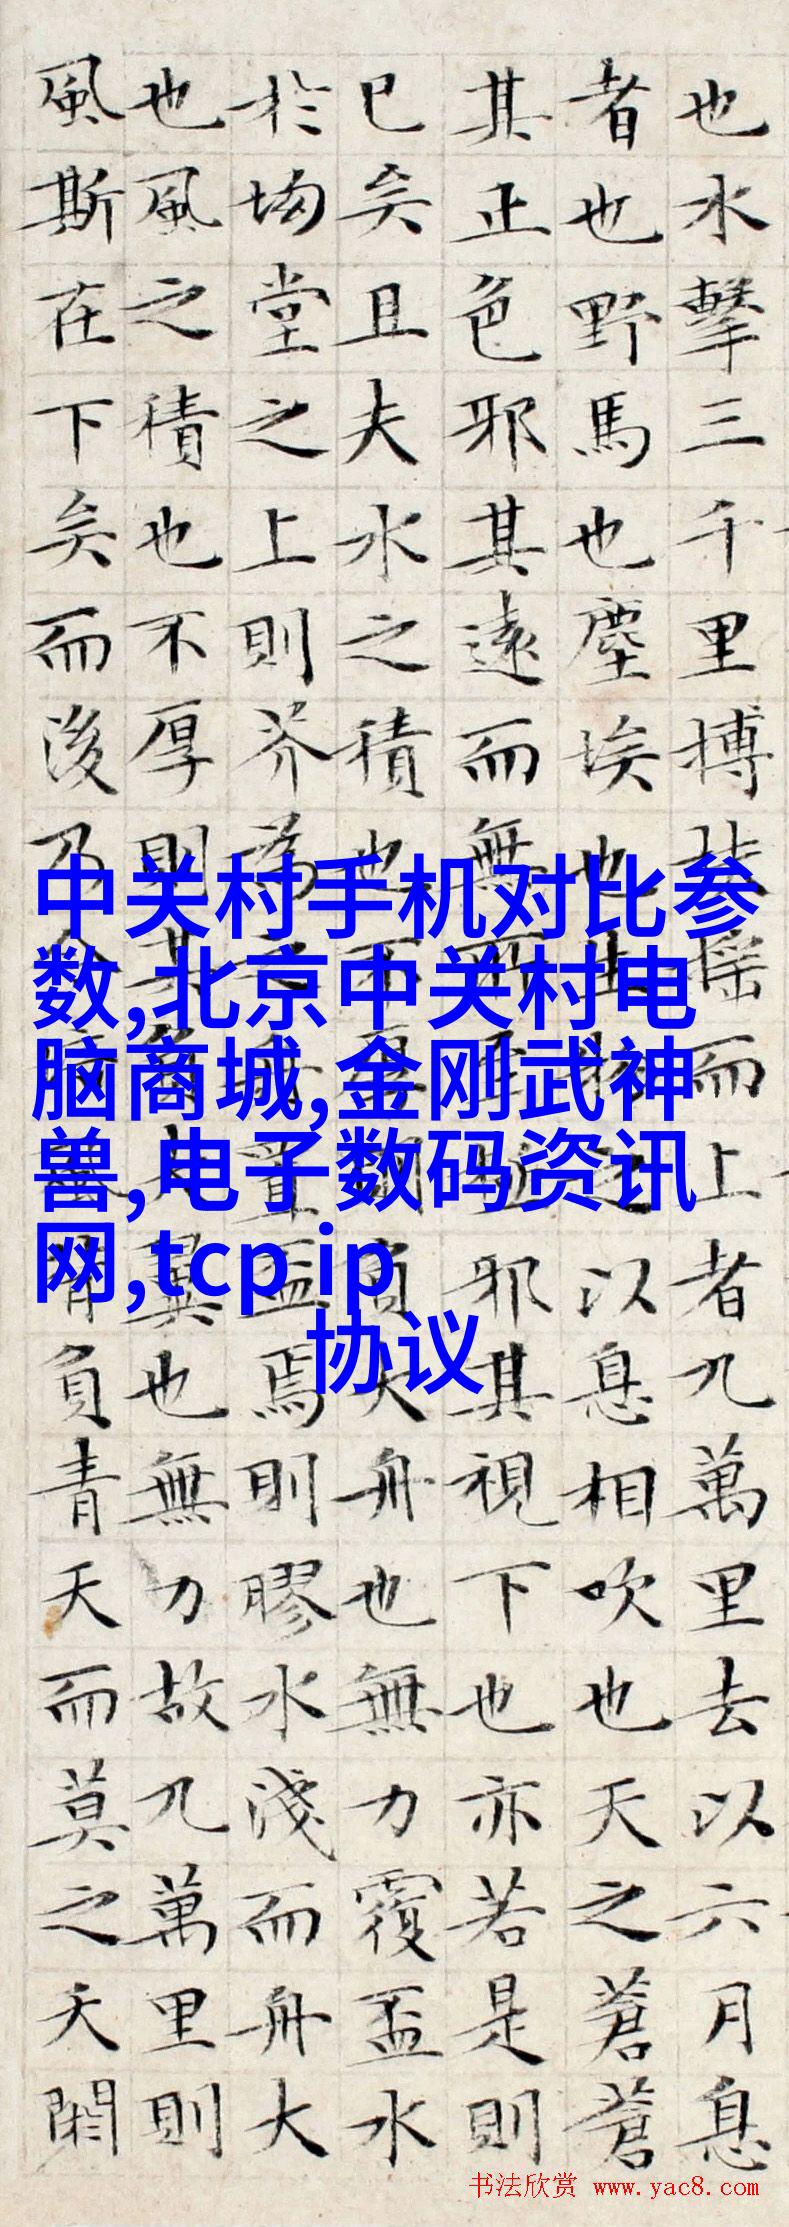 也水擊三千里搏扶摇而上者九萬里去以六月息
者也野馬也塵埃也生物之以息相吹也天之蒼蒼
其正色邪其遠而無所至極邪其視下也亦若是則
已矣且夫水之積也不厚則負大舟也無力覆盃水
於坳堂之上則芥為之舟置盃焉則膠水淺而舟大
也風之積也不厚則其負大翼也無力故九萬里則
風斯在下矣而後乃今培風背負青天而莫之夭閼
中关村手机对比参
数,北京中关村电
脑商城,金刚武神
兽,电子数码资讯
网,tcp ip
协议
书法欣赏 www.yac8.com